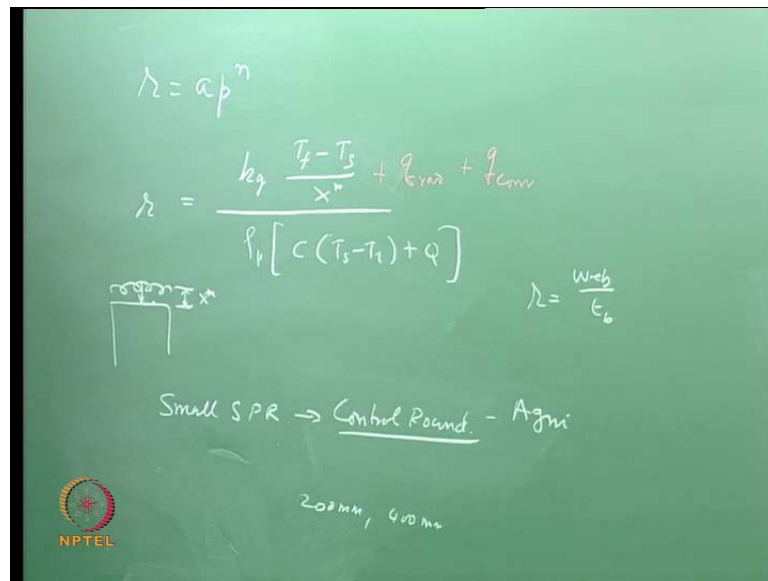 r = ap^n
r = \frac{k_g \frac{T_f - T_s}{x^*} + q_{rad} + q_{conv}}{\rho_p [C(T_s - T_i) + Q]}
x^*
r = \frac{web}{t_b}
Small SPR → Control Round. - Agni
200mm, 400mm
NPTEL